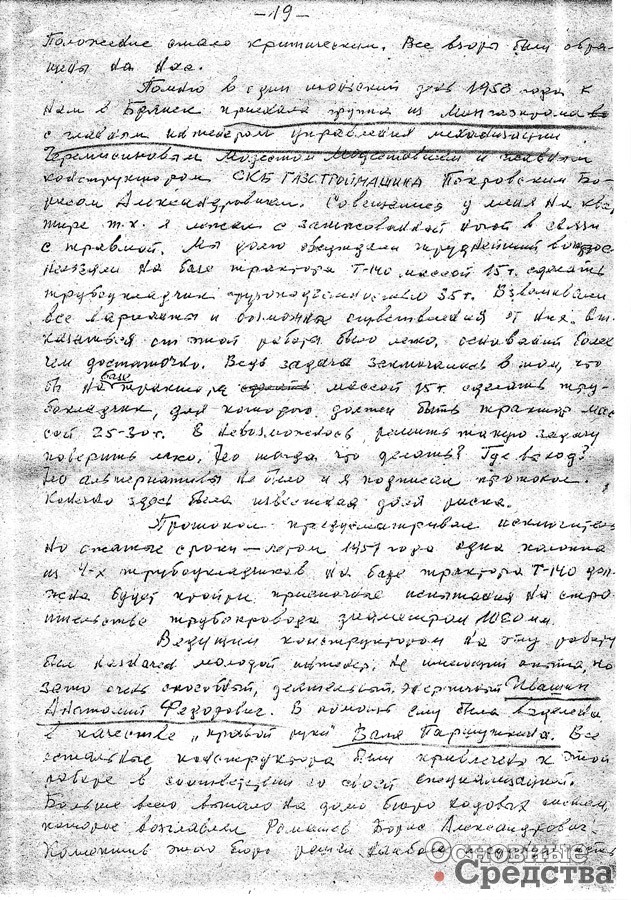 -19-
Положение стало критическим. Все взоры были обра-
щены на нас.
Помню в один июньский день 1958 года к
нам в Брянск приехала группа из Мингазпрома во
с главным инженером управления механизации
Черемисиновым Модестом Модестовичем и главным
конструктором СКБ ГАЗСТРОЙМАШИНА Покровским Бо-
рисом Александровичем. Совещались у меня на ква
тире т.к. я лежал с загипсованной ногой в связи
с травмой. Мы долго обсуждали труднейший вопрос
на базе трактора Т-140 массой 15т. сделать
трубоукладчик грузоподъемностью 35т. Взвешивали
все варианты и возможные от них. От-
казаться от этой работы было легко, оснований более
чем достаточно. Ведь задача заключалась в том, что
бы на базе трактора сделать массой 15т. сделать тру-
бокладчик, для которого должен быть трактор мас
сой 25-30т. В невозможность решить такую задачу
поверить легко, но тогда что делать? Где выход?
Но альтернативы не было и я подписал протокол.
Конечно здесь была известная доля риска.
Протокол предусматривал исключитель
но сжатые сроки — летом 1959 года одна колонна
из 4-х трубоукладчиков на базе трактора Т-140 дол-
жна будет пройти приемочные испытания на стро
ительстве трубопровода диаметром 1020 мм.
Ведущим конструктором на эту работу
был назначен молодой инженер, не имеющий опыта, но
зато очень способный, деятельный, энергичный Ивашин
Анатолий Федорович. В помощь ему была выделена
в качестве „правой руки" Валя Паршункина. Все
остальные конструктора были привлечены к этой
работе в соответствии со своей специализацией.
Больше всего выпало на долю бюро ходовых систем,
которое возглавлял Ромашев Борис Александрович.
Коллектив этого бюро решил
Основные
Средства